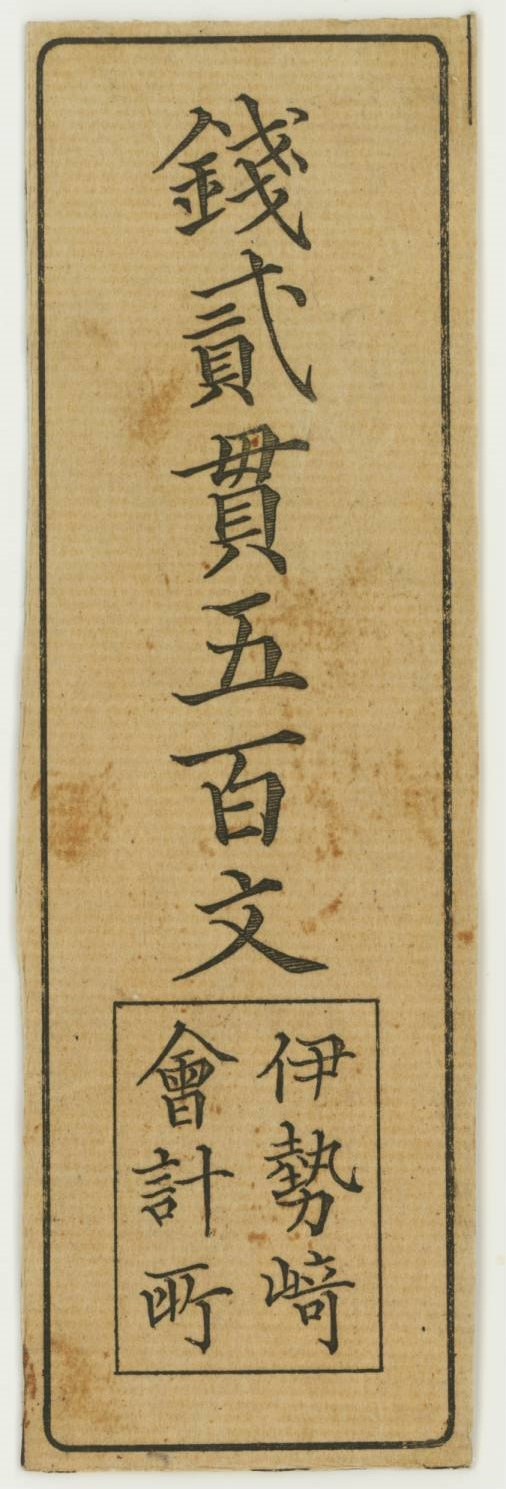 錢貳貫五百文
伊勢﨑
會計所